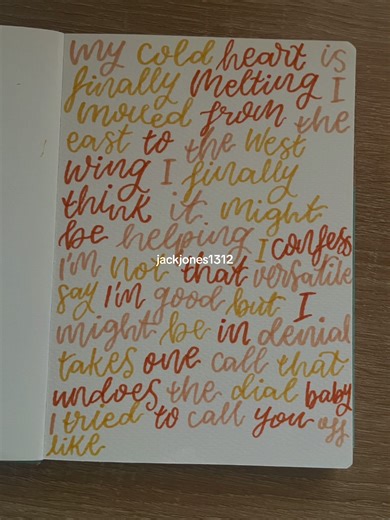 my cold heart is
finally melting I
moved from the
east to the West
wing I finally
think it might
be helping I confess
jackjones1312
I'm not that versatile
say I'm good but I
might be in denial
takes one call that
undoes the dial baby
I tried to call you off
like